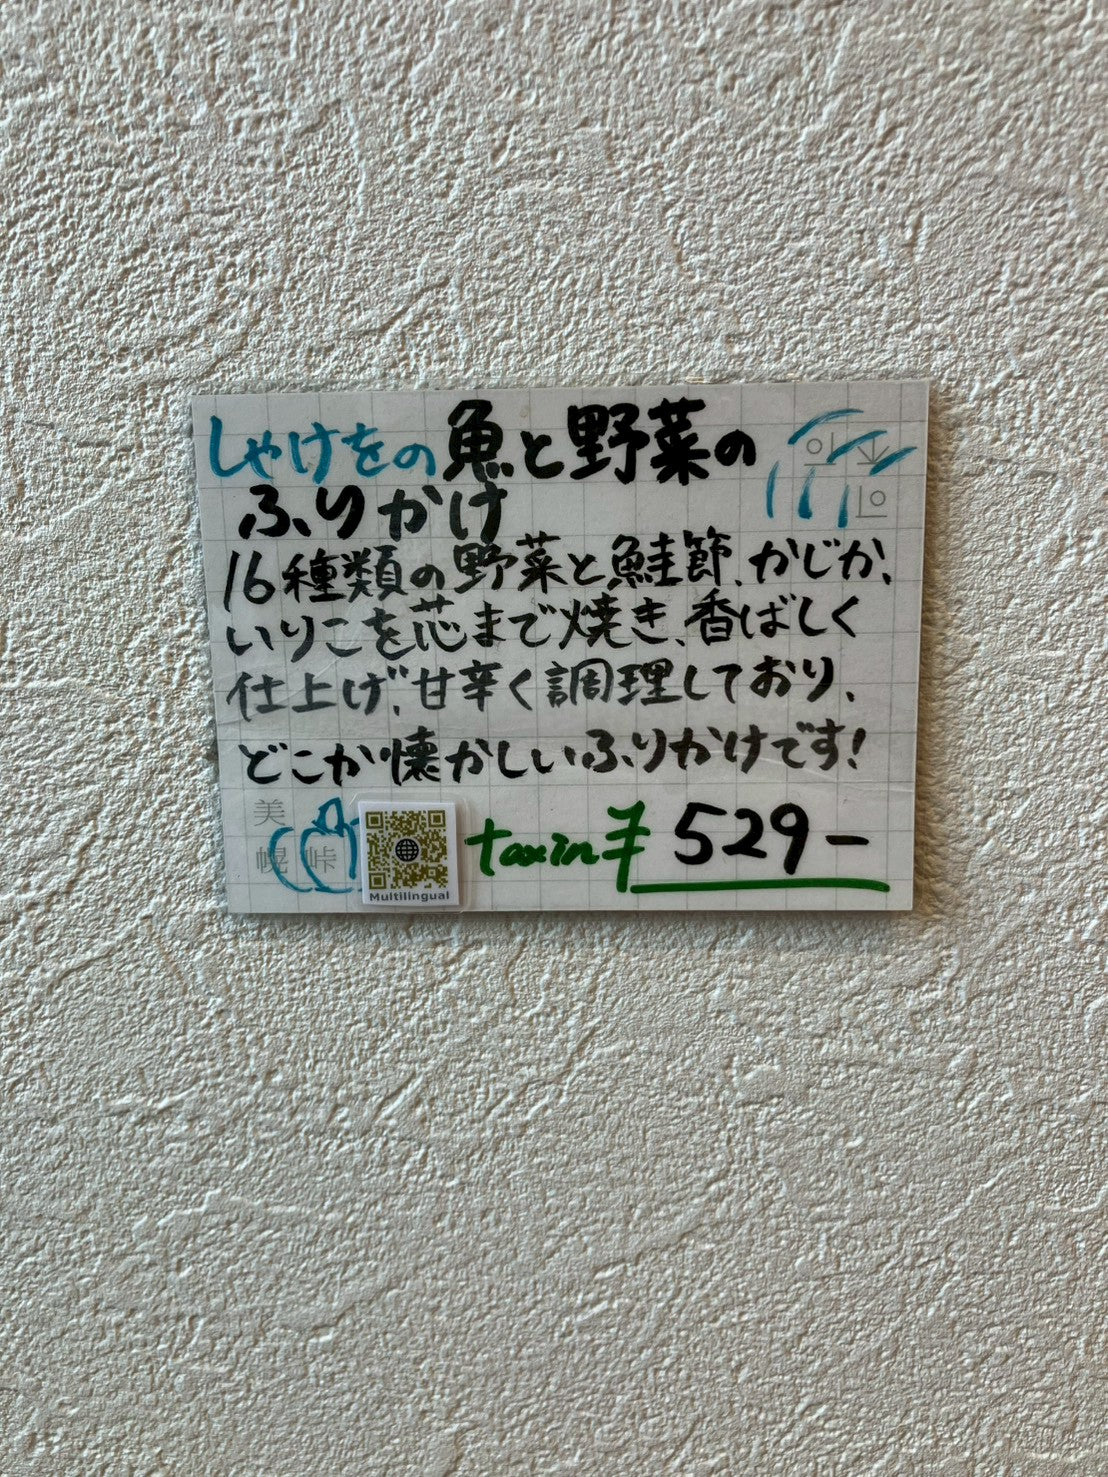 しゃけをの魚と野菜の
ふりかけ
16種類の野菜と鮭節、かじか、
いりこを芯まで焼き、香ばしく
仕上げ、甘辛く調理しており、
どこか懐かしいふりかけです!
美
幌 峠
Multilingual
taxin ¥ 529-